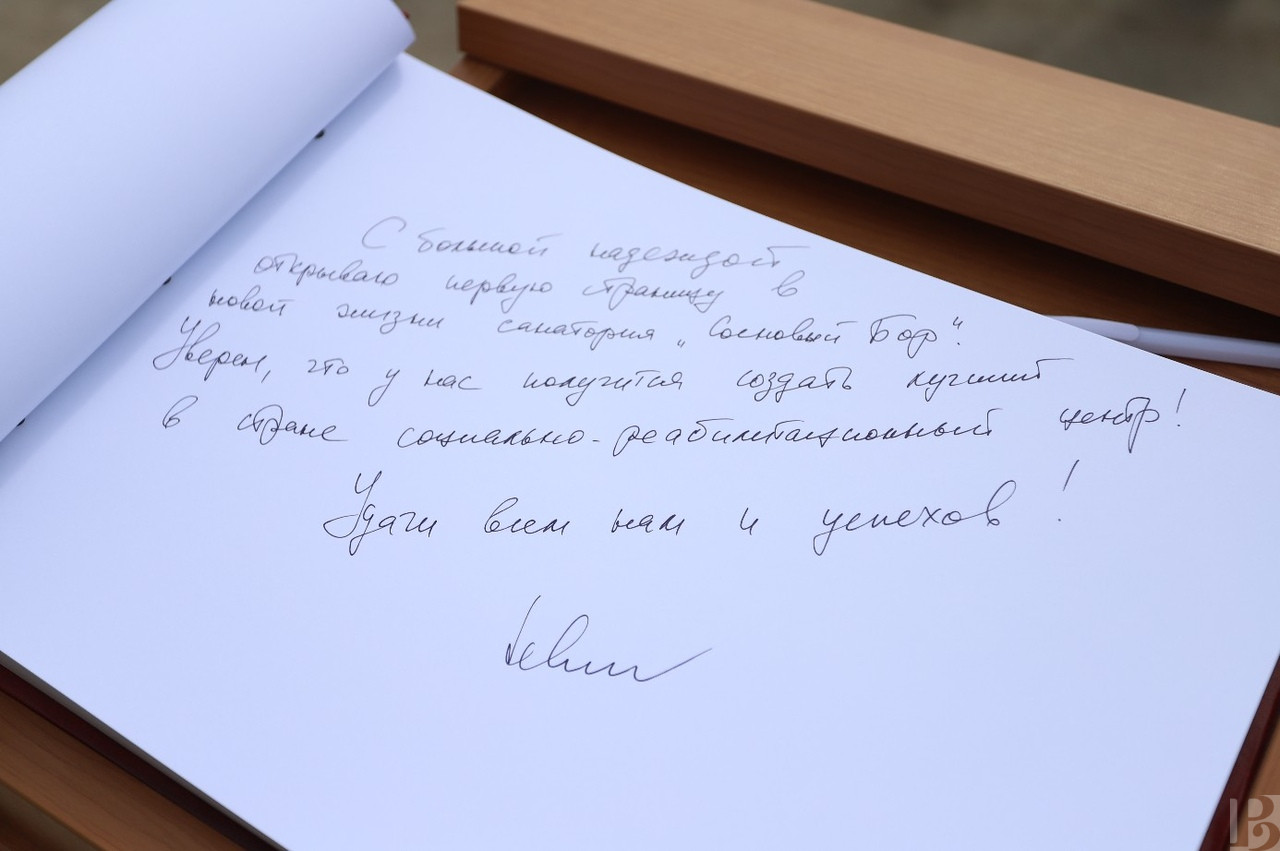 С большой надеждой
открываю первую страницу в
новой жизни санатория „Сосновый Бор".
Уверен, что у нас получится создать лучший
в стране социально-реабилитационный центр!
Удачи всем нам и успехов!